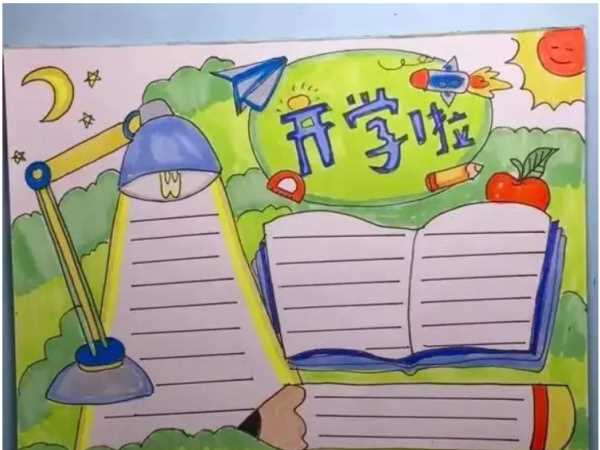 开学啦